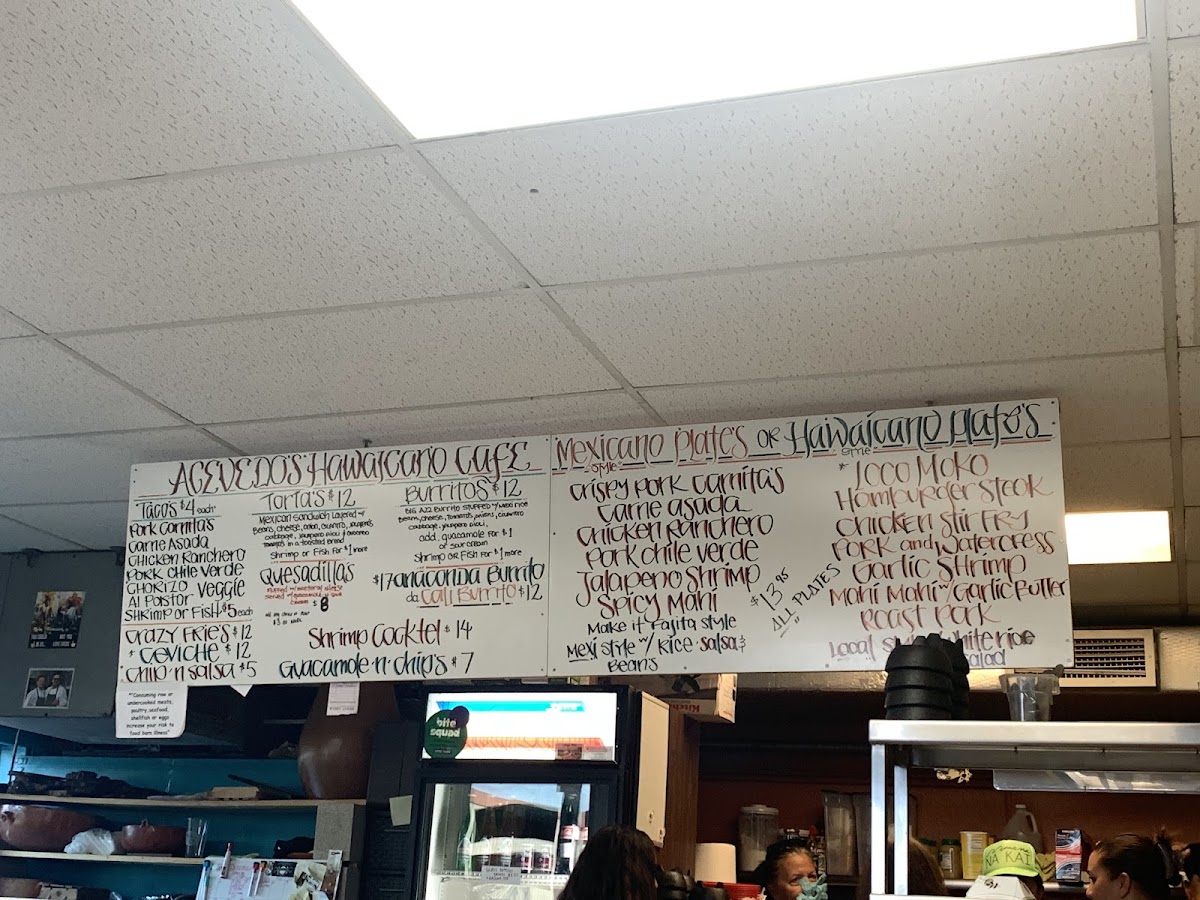 ACEVEDO'S HAWAICANO CAFE
TACOS $4 each
PORK CARNITAS
CARNE ASADA
CHICKEN RANCHERO
PORK CHILE VERDE
CHORIZO VEGGIE
Al PASTOR
SHRIMP OR FISH $5 each
CRAZY FRIES $12
* CEVICHE * $12
CHIP 'N SALSA $5
TORTA'S $12
MEXICAN SANDWICH LAYERED W/
Shrimp or Fish for $1 more
QUESADILLA'S
$8
BURRITOS $12
BIG AZZ BURRITO STUFFED W/ MEXI RICE
add guacamole for $1
or sour cream
Shrimp OR Fish for $1 more
$17 anaconda Burrito
da CALI BURRITO $12
Shrimp Cocktel $14
Guacamole-n-chip's $7
MEXICANO Plate's OR HAWAICANO Plato's
STYLE
STYLE
CRISPY PORK CARNITAS
Carne asada
CHICKEN RANCHERO
PORK CHILE VERDE
Jalapeno Shrimp
SPICY MAHI
Make it Fajita style
MEXI STYLE W/ RICE SALSA &
BEANS
$13.95
ALL PLATES
* LOCO MOKO
Hamburger Steak
Chicken Stir FRY
PORK and WATERCRESS
Garlic Shrimp
MAHI MAHI W/ Garlic Butter
ROAST PORK
Local Style White rice
"*Consuming raw or
undercooked meats,
poultry, seafood,
shellfish or eggs
increase your risk to
food born illness"
bite
squad
NA KAI